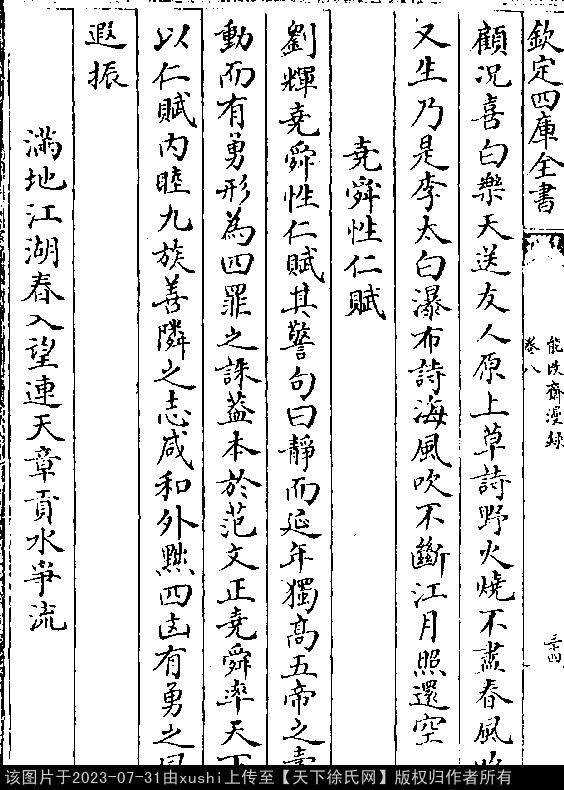 欽定四庫全書
能改齋漫録
卷八
三十四
顧况喜白樂天送友人原上草詩野火燒不盡春風吹
又生乃是李太白瀑布詩海風吹不斷江月照還空
堯舜性仁賦
劉輝堯舜性仁賦其警句曰靜而延年獨高五帝之壽
動而有勇形為四罪之誅葢本於范文正堯舜率天下
以仁賦内睦九族善隣之志咸和外黜四凶有勇之風
遐振
滿地江湖春入望連天章貢水爭流
该图片于2023-07-31由xushi上传至【天下徐氏网】版权归作者所有